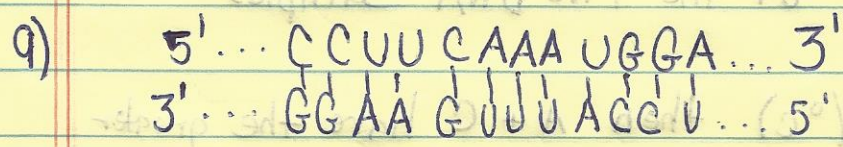 9) 5'... CCUU CAAA UGGA... 3'
3'... GGAA GUUU ACCU... 5'